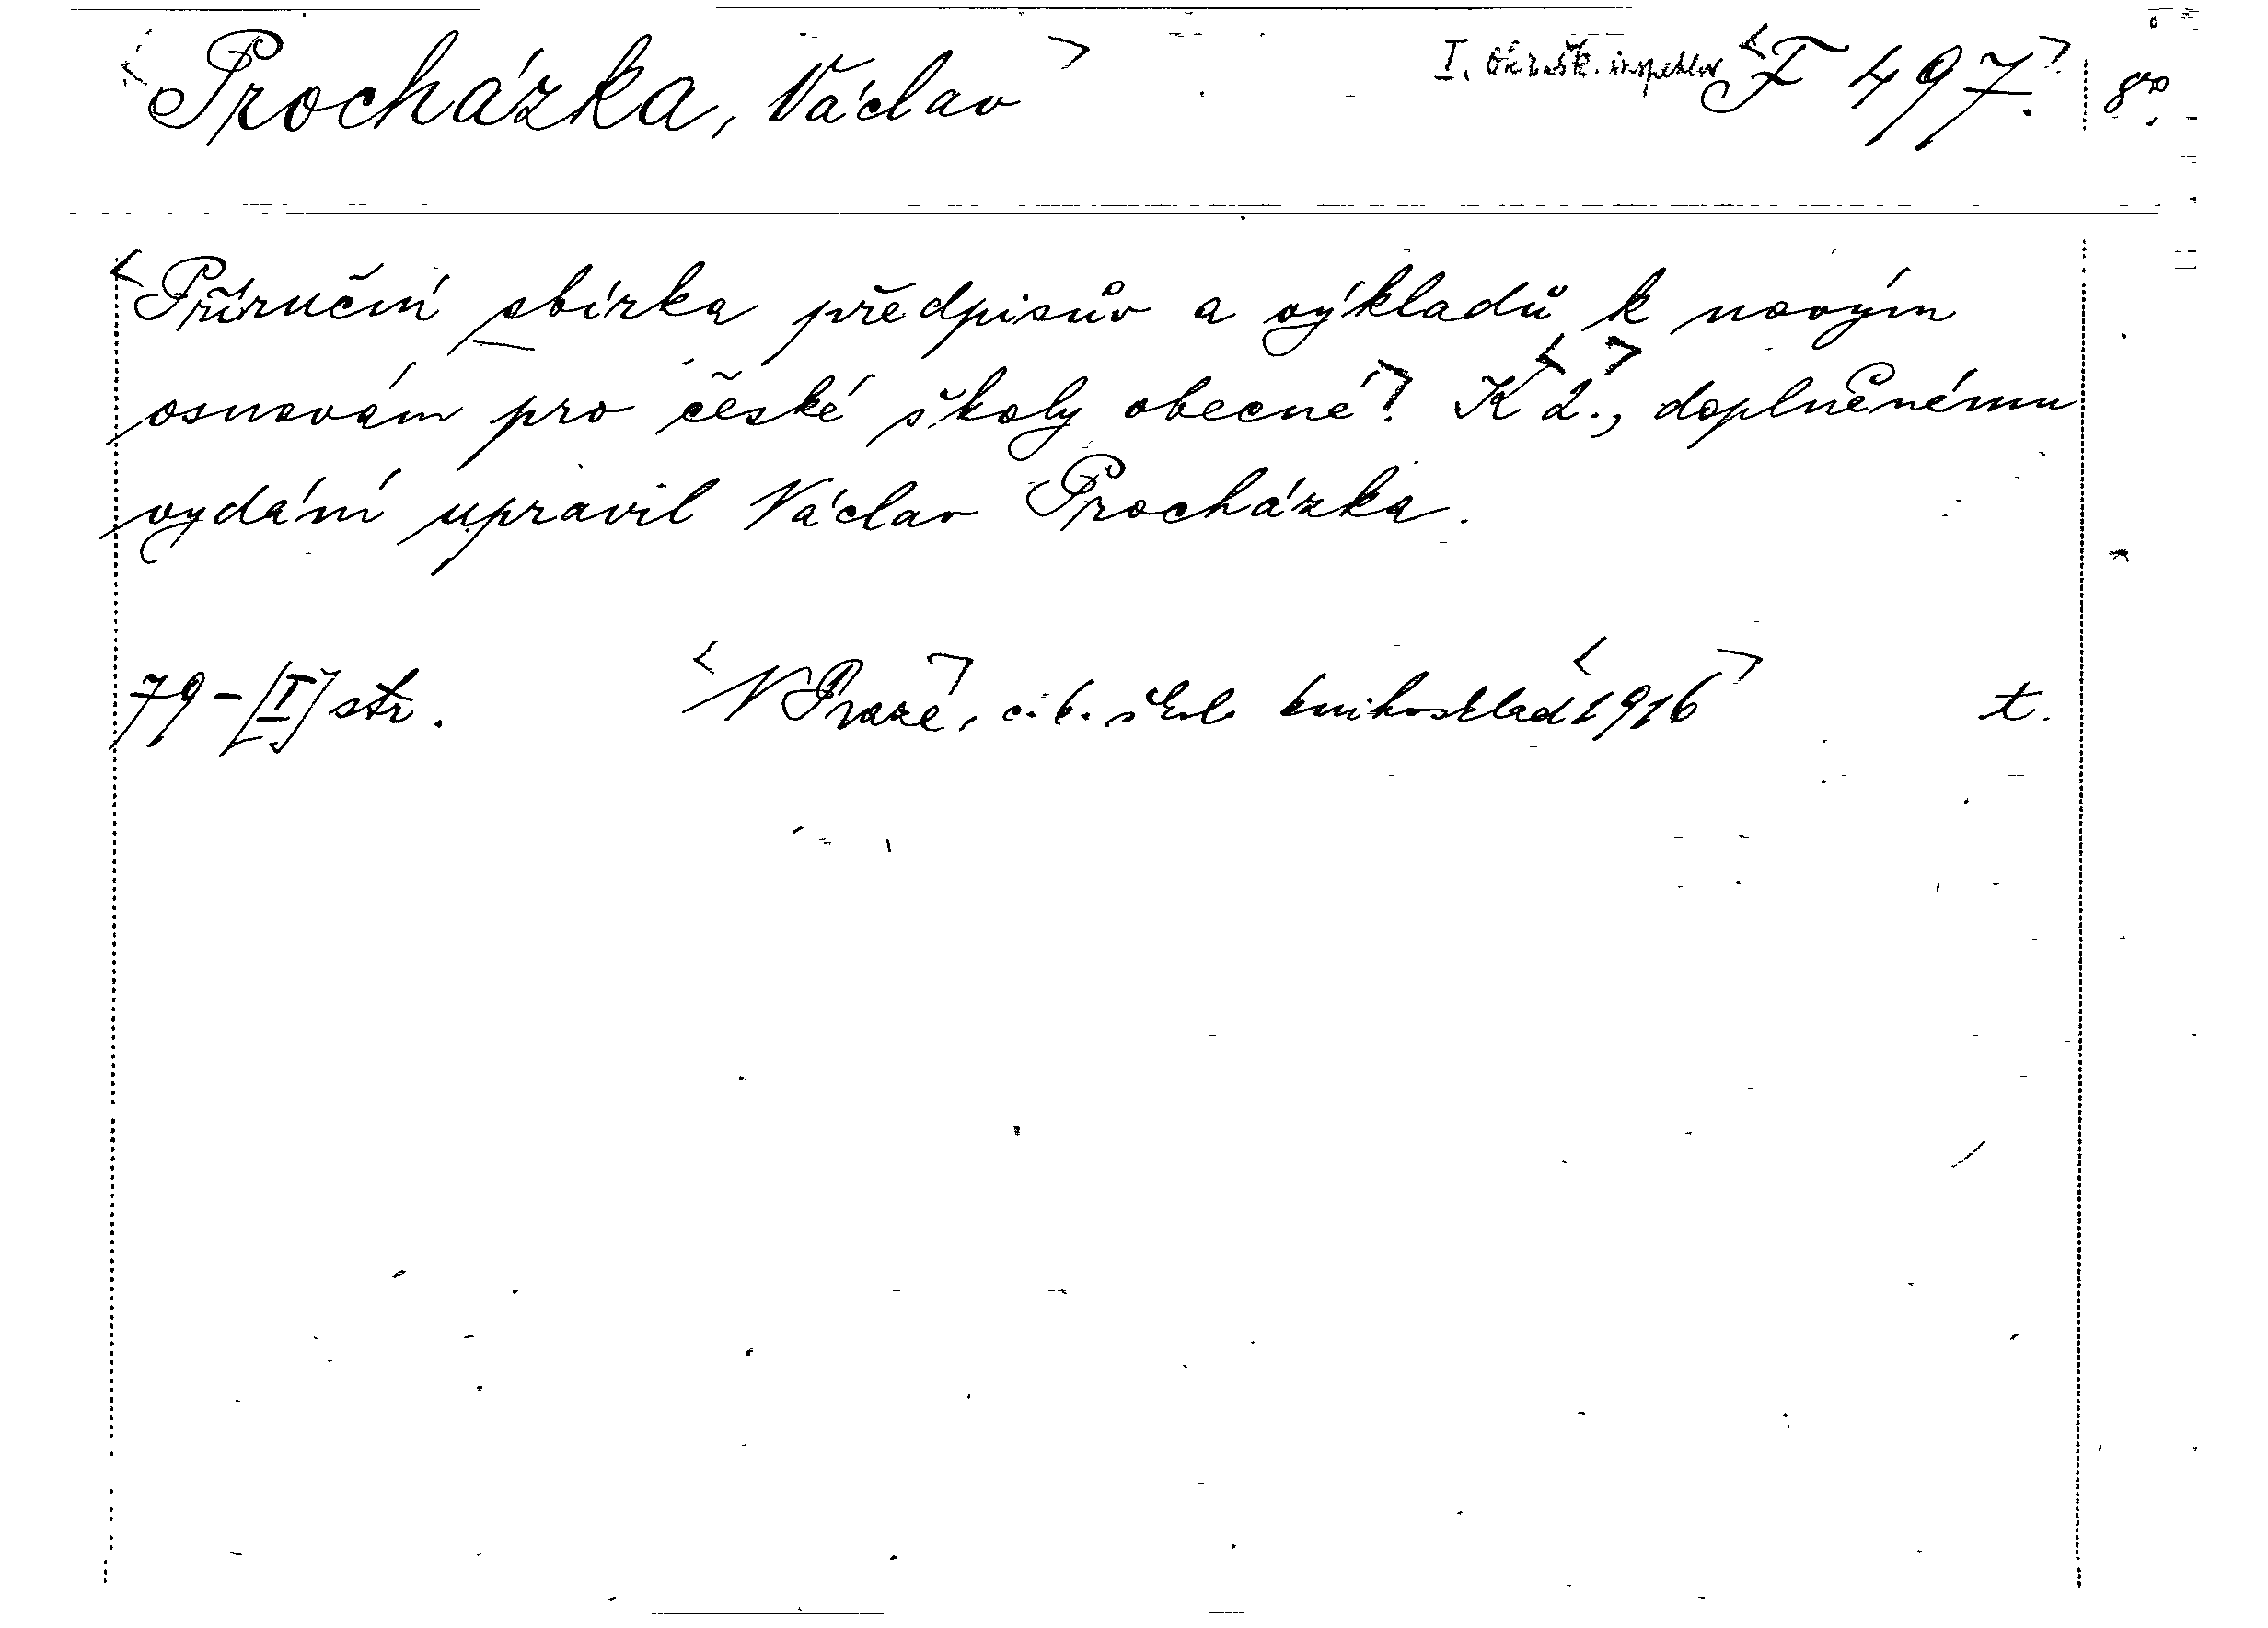 Procházka, Václav I. škr. inspektor F 497. 8°.
Příruční sbírka předpisův a výkladů k novým
osnovám pro české školy obecné. K 2., doplněnému
vydání upravil Václav Procházka.
79-[I] str. V Praze, c. k. škol. knihosklad 1916 t.